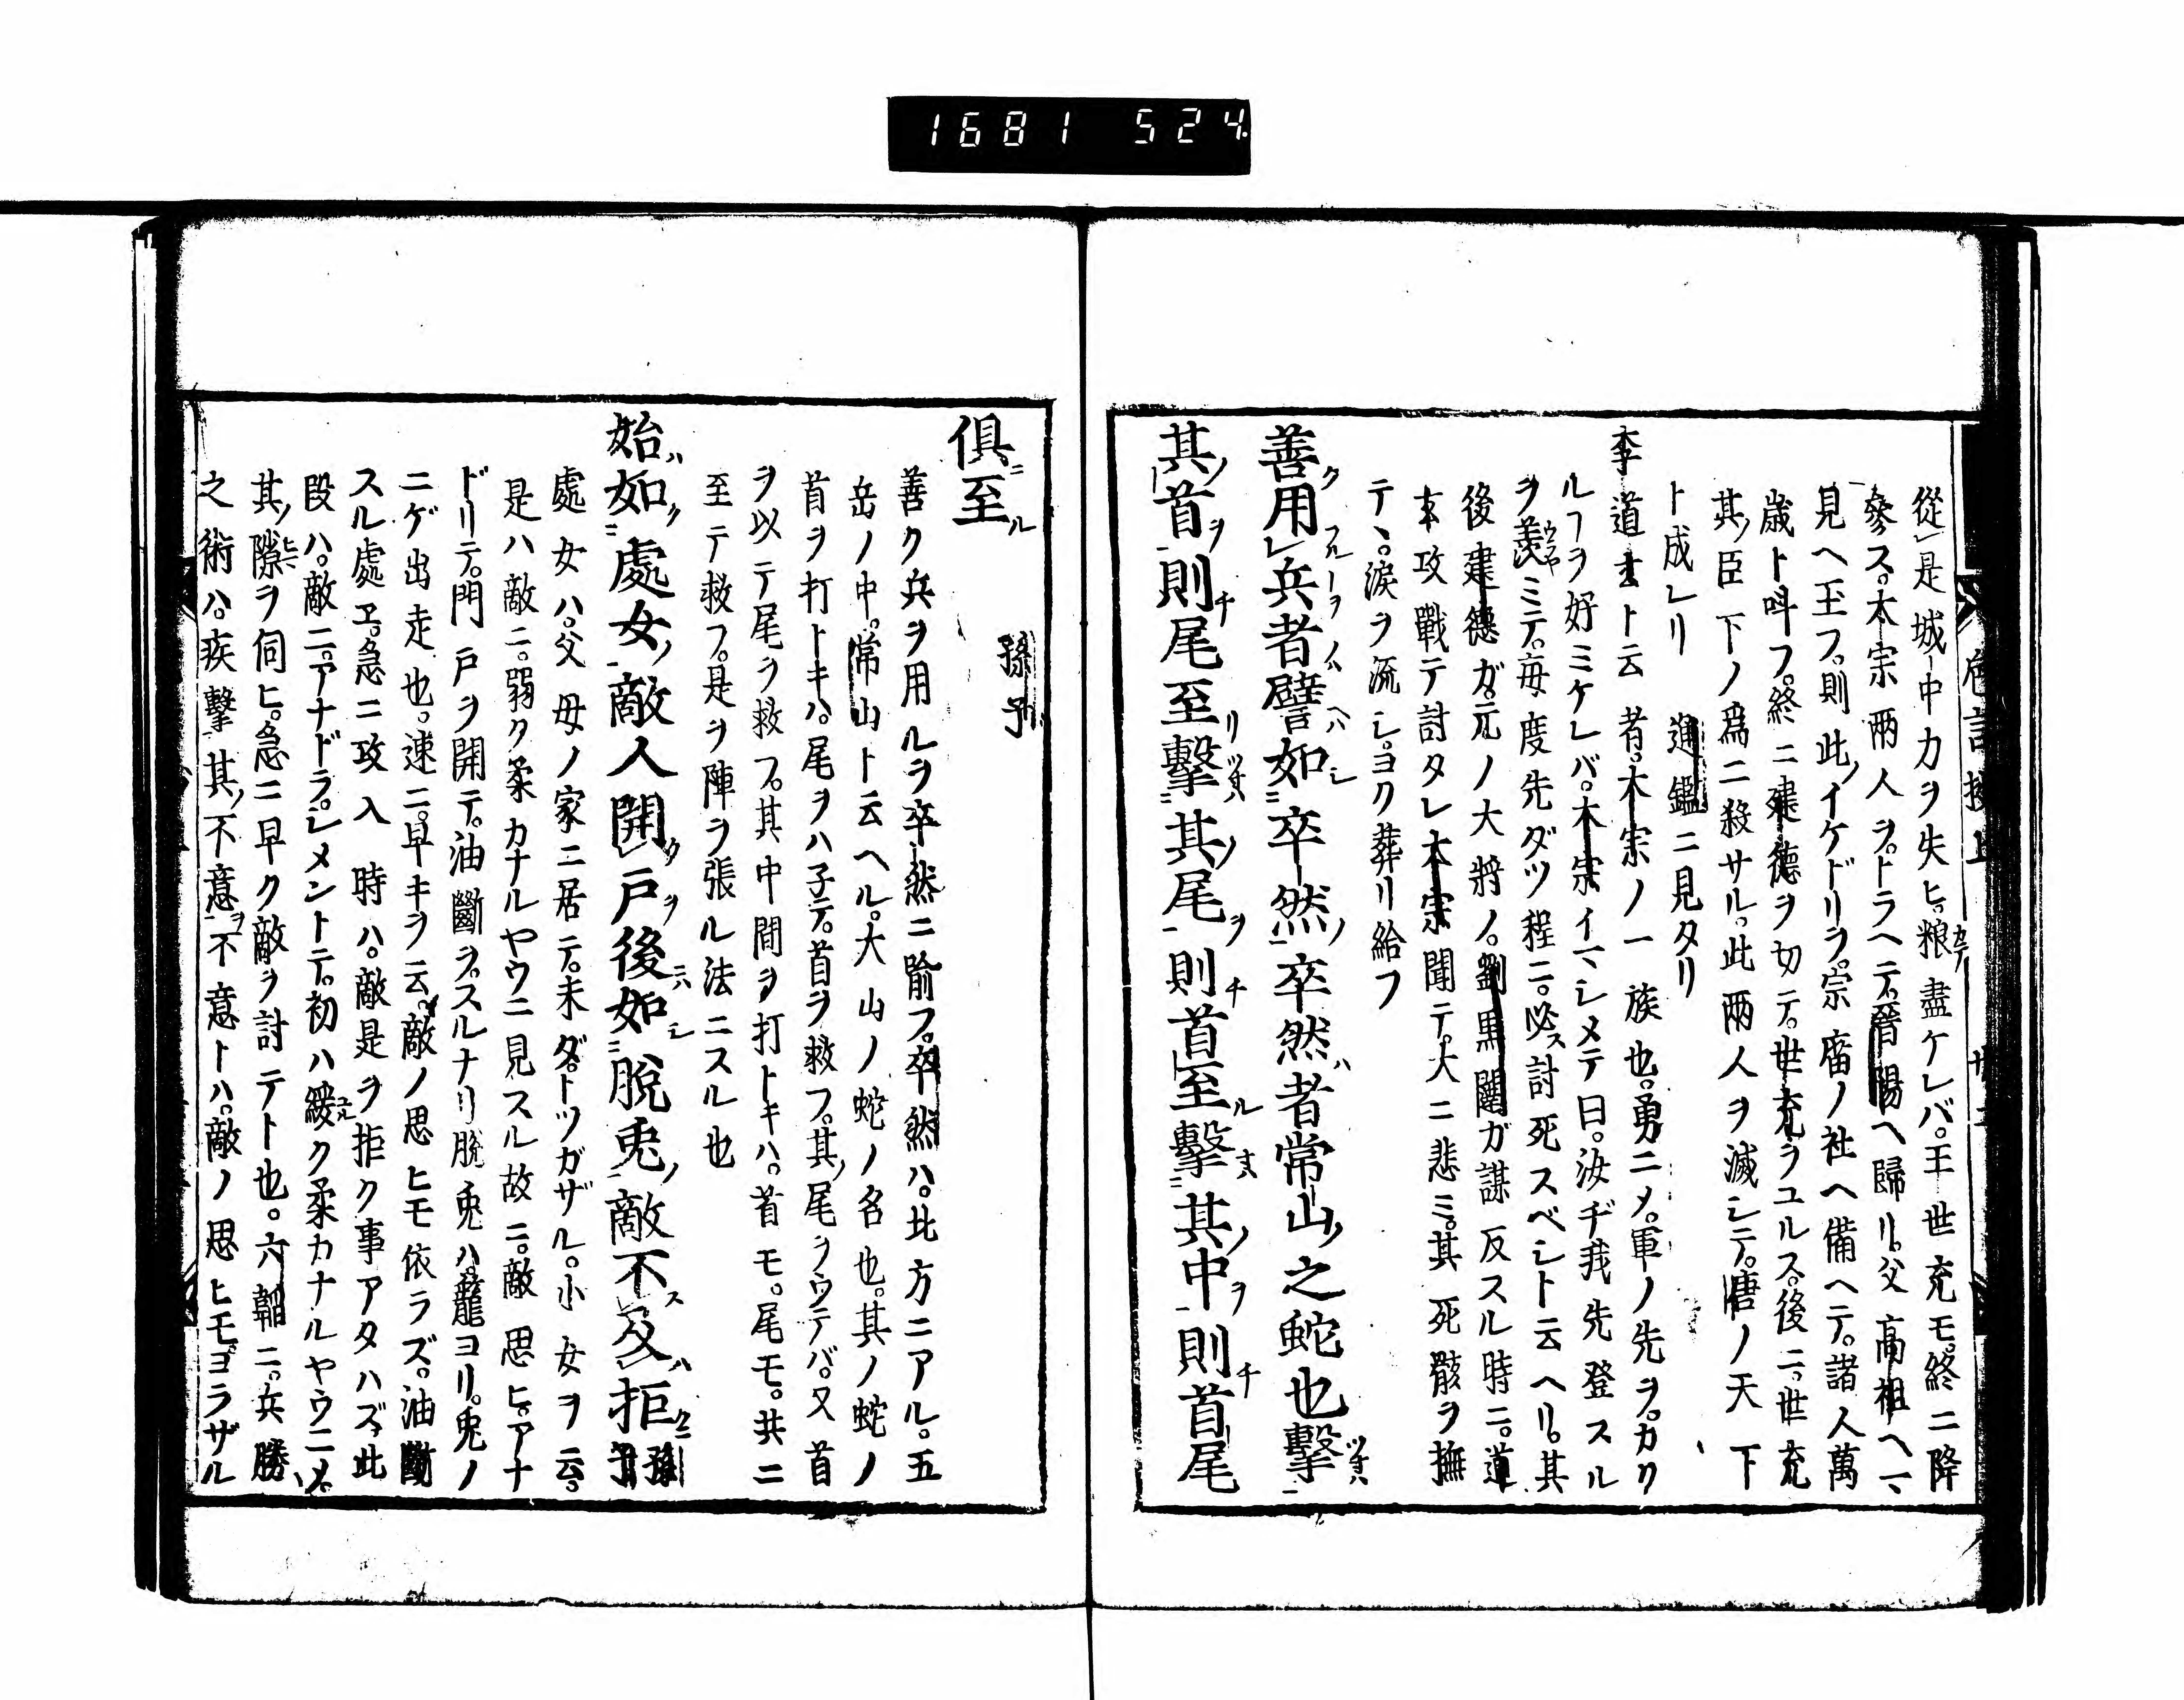 1681 524
從是城中力ヲ失ヒ。粮盡ケレバ。王世充モ。終ニ降
參ス。太宗兩人ヲ。トラヘテ。晉陽ヘ歸リ。父高祖ヘマ
見ヘ玉フ。則此ノイケドリヲ。宗廟ノ社ヘ備ヘテ。諸人萬
歳ト呼フ。終ニ建德ヲ切テ。世充ヲユルス。後ニ。世充
其ノ臣下ノ爲ニ殺サル。此兩人ヲ滅シテ。唐ノ天下
ト成レリ 通鑑ニ見タリ
李道玄ト云者。太宗ノ一族也。勇ニメ。軍ノ先ヲ。カク
ルヿヲ好ミケレバ。太宗イマシメテ曰。汝ヂ我先登スル
ヲ羨ミテ。毎度先ダツ程ニ。必ス討死スベシト云ヘリ。其
後建德ガ。元ノ大將ノ。劉黒闥ガ謀反スル時ニ。道
玄攻戰テ討タレ太宗聞テ。大ニ悲ミ。其死骸ヲ撫
テヽ。涙ヲ流シ。ヨク葬リ給フ
善用兵者譬如卒然卒然者常山之蛇也擊
其首則尾至擊其尾則首至擊其中則首尾
俱至 孫子
善ク兵ヲ用ルヲ卒然ニ喩フ。卒然ハ。北方ニアル。五
岳ノ中。常山ト云ヘル。大山ノ蛇ノ名也。其ノ蛇ノ
首ヲ打トキハ。尾ヲハ子テ。首ヲ救フ。其ノ尾ヲウテバ。又首
ヲ以テ尾ヲ救フ。其中間ヲ打トキハ。首モ。尾モ。共ニ
至テ救フ。是ヲ陣ヲ張ル法ニスル也
始如處女敵人開戸後如脫兎敵不及拒 孫子
處女ハ。父母ノ家ニ居テ。未ダトツガザル。小女ヲ云。
是ハ敵ニ。弱ク柔カナルヤウニ見スル故ニ。敵思ヒ。アナ
ドリテ。門戸ヲ開テ。油斷ヲ。スルナリ脱兎ハ。籠ヨリ。兎ノ
ニゲ出走也。速ニ。早キヲ云。敵ノ思ヒモ依ラズ。油斷
スル處エ。急ニ攻入時ハ。敵是ヲ拒ク事アタハズ。此
段ハ。敵ニ。アナドラ。シメントテ。初ハ緩ク柔カナルヤウニメ。
其ノ隙ヲ伺ヒ。急ニ早ク敵ヲ討テト也。六韜ニ。兵勝
之術ハ。疾擊其ノ不意ヲ不意トハ。敵ノ思ヒモ。ヨラザル